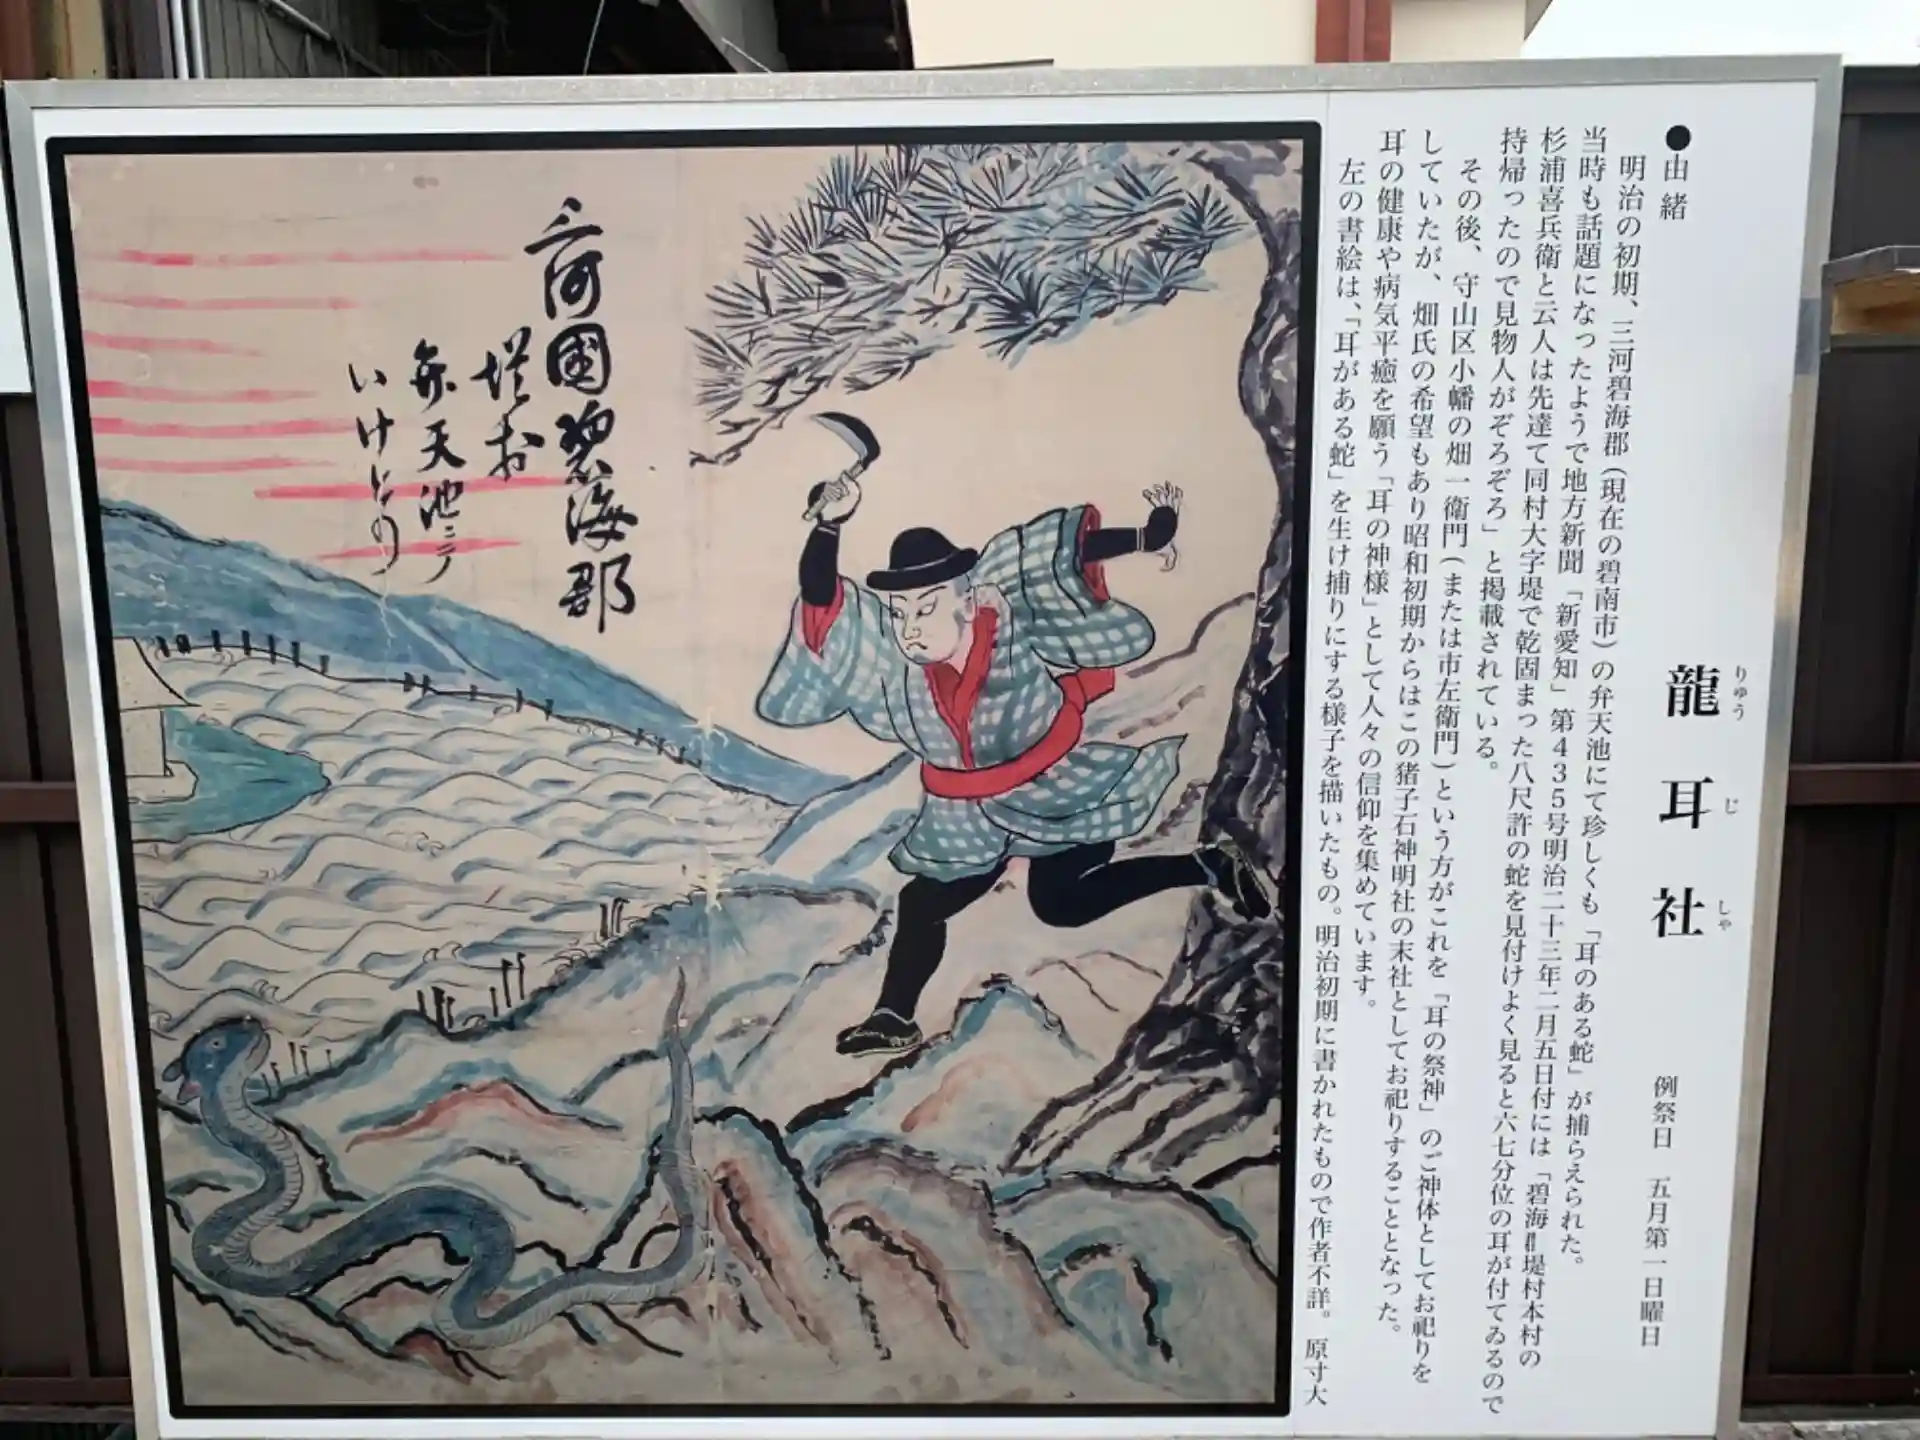 龍耳社
りゅうじしゃ
例祭日 五月第一日曜日
●由緒
明治の初期、三河碧海郡(現在の碧南市)の弁天池にて珍しくも「耳のある蛇」が捕らえられた。
当時も話題になったようで地方新聞「新愛知」第435号明治二十三年二月五日付には「碧海郡堤村本村の
杉浦喜兵衛と云人は先達て同村大字堤で乾固まった八尺許の蛇を見付けよく見ると六七分位の耳が付てゐるので
持帰ったので見物人がぞろぞろ」と掲載されている。
その後、守山区小幡の畑一衛門(または市左衛門)という方がこれを「耳の祭神」のご神体としてお祀りを
していたが、畑氏の希望もあり昭和初期からはこの猪子石神明社の末社としてお祀りすることとなった。
耳の健康や病気平癒を願う「耳の神様」として人々の信仰を集めています。
左の書絵は、「耳がある蛇」を生け捕りにする様子を描いたもの。明治初期に書かれたもので作者不詳。 原寸大
三河國碧海郡
弁天池ニテ